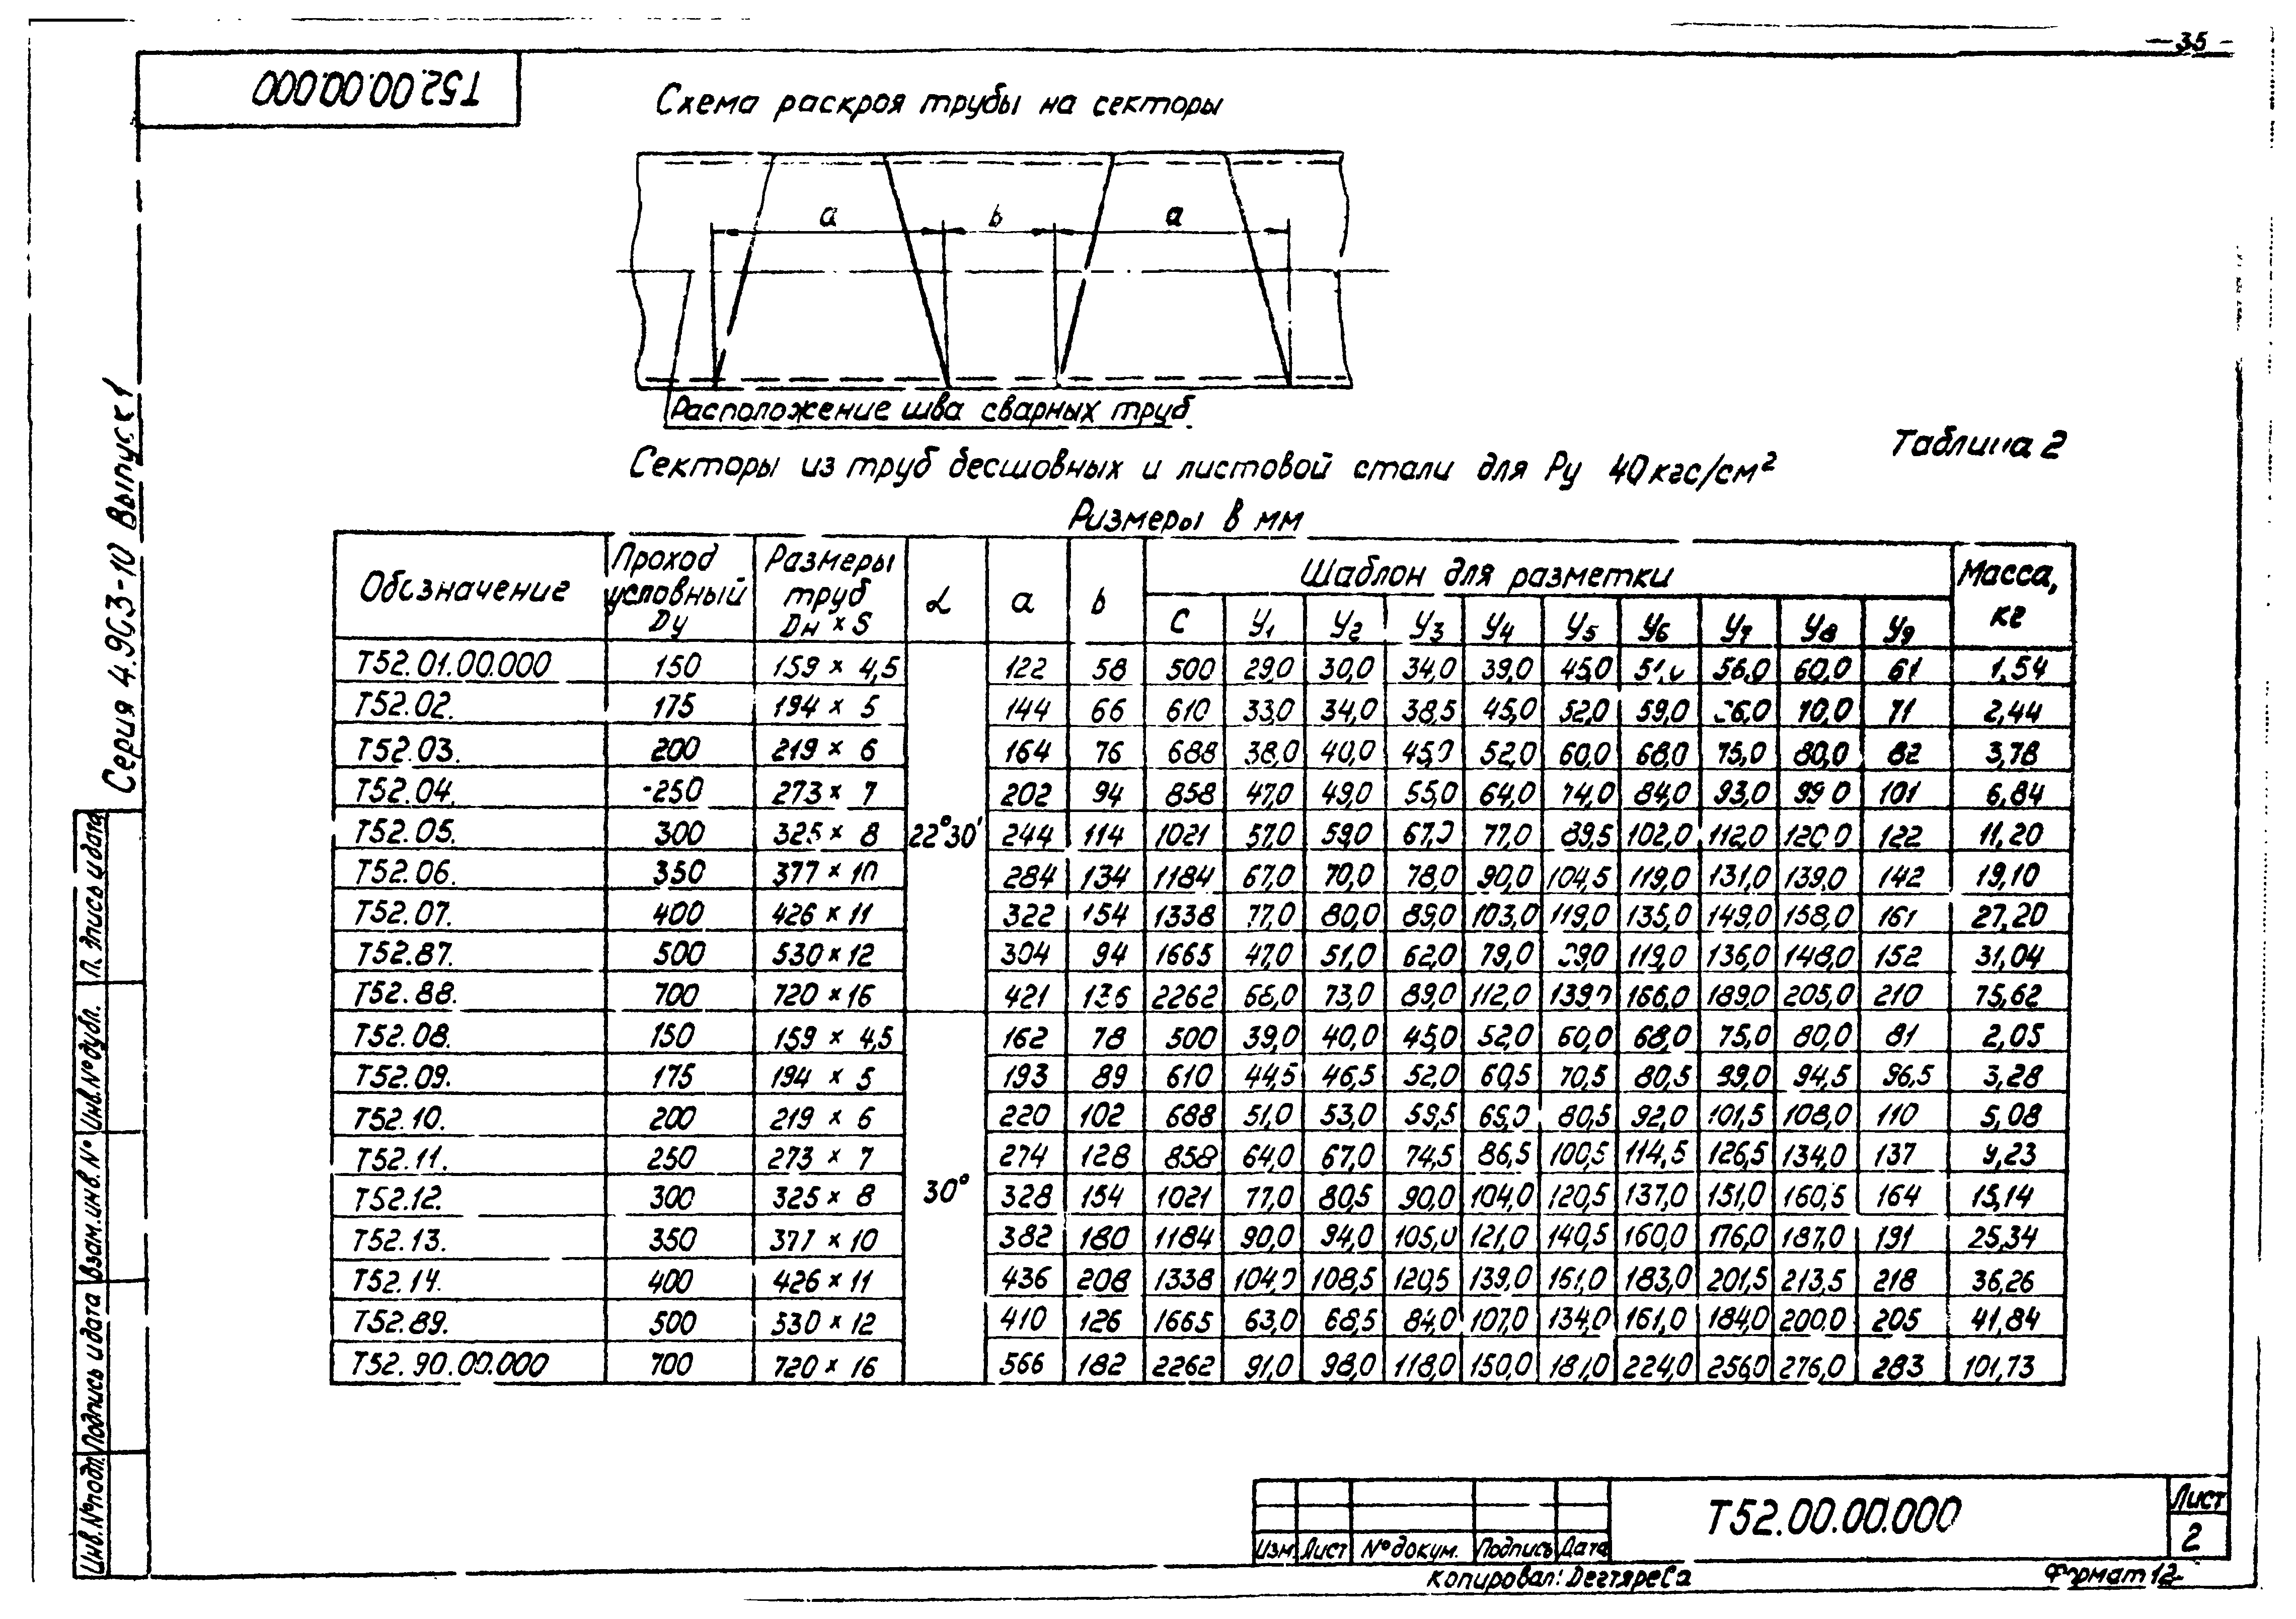 35
Т52.00.00.000
Схема раскроя трубы на секторы
а b а
Расположение шва сварных труб
Таблица 2
Секторы из труб бесшовных и листовой стали для Ру 40 кгс/см²
Размеры в мм
Обозначение Проход условный Dу Размеры труб Dн × S α а b Шаблон для разметки Масса, кг
С У1 У2 У3 У4 У5 У6 У7 У8 У9
Т52.01.00.000 150 159 × 4,5 122 58 500 29,0 30,0 34,0 39,0 45,0 51,0 56,0 60,0 61 1,54
Т52.02. 175 194 × 5 144 66 610 33,0 34,0 38,5 45,0 52,0 59,0 70,0 71 2,44
Т52.03. 200 219 × 6 164 76 688 38,0 40,0 45,0 52,0 60,0 68,0 75,0 80,0 82 3,78
Т52.04. 250 273 × 7 202 94 858 47,0 49,0 55,0 64,0 74,0 84,0 93,0 99,0 101 6,84
Т52.05. 300 325 × 8 22°30' 244 114 1021 57,0 59,0 67,0 77,0 89,5 102,0 112,0 120,0 122 11,20
Т52.06. 350 377 × 10 284 134 1184 67,0 70,0 78,0 90,0 104,5 119,0 131,0 139,0 142 19,10
Т52.07. 400 426 × 11 322 154 1338 77,0 80,0 89,0 103,0 119,0 135,0 149,0 158,0 161 27,20
Т52.87. 500 530 × 12 304 94 1665 47,0 51,0 62,0 79,0 119,0 136,0 148,0 152 31,04
Т52.88. 700 720 × 16 421 136 2262 68,0 73,0 89,0 112,0 139,0 166,0 189,0 205,0 210 75,62
Т52.08. 150 159 × 4,5 162 78 500 39,0 40,0 45,0 52,0 60,0 68,0 75,0 80,0 81 2,05
Т52.09. 175 194 × 5 193 89 610 44,5 46,5 52,0 60,5 70,5 80,5 94,5 96,5 3,28
Т52.10. 200 219 × 6 220 102 688 51,0 53,0 59,5 69,0 80,5 92,0 101,5 108,0 110 5,08
Т52.11. 250 273 × 7 274 128 858 64,0 67,0 74,5 86,5 100,5 114,5 126,5 134,0 137 9,23
Т52.12. 300 325 × 8 30° 328 154 1021 77,0 80,5 90,0 104,0 120,5 137,0 151,0 160,5 164 15,14
Т52.13. 350 377 × 10 382 180 1184 90,0 94,0 105,0 121,0 140,5 160,0 176,0 187,0 191 25,34
Т52.14. 400 426 × 11 436 208 1338 104,0 108,5 120,5 139,0 161,0 183,0 201,5 213,5 218 36,26
Т52.89. 500 530 × 12 410 126 1665 63,0 68,5 84,0 107,0 134,0 161,0 184,0 200,0 205 41,84
Т52.90.00.000 700 720 × 16 566 182 2262 91,0 98,0 118,0 150,0 181,0 224,0 256,0 276,0 283 101,73
Серия 4.903-10 Выпуск 1
Инв.№подл. Подпись и дата Взам.инв.№ Инв.№дубл. Подпись и дата
Изм. Лист №докум. Подпись Дата
Т52.00.00.000
Лист
2
Копировал:
Формат 12